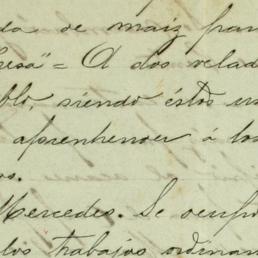 da de maiz par
resa" = A dos velad
blo, siendo éstos us
aprenhender á los
os.
Mercedes. Se ocupó
los trabajos ordinar